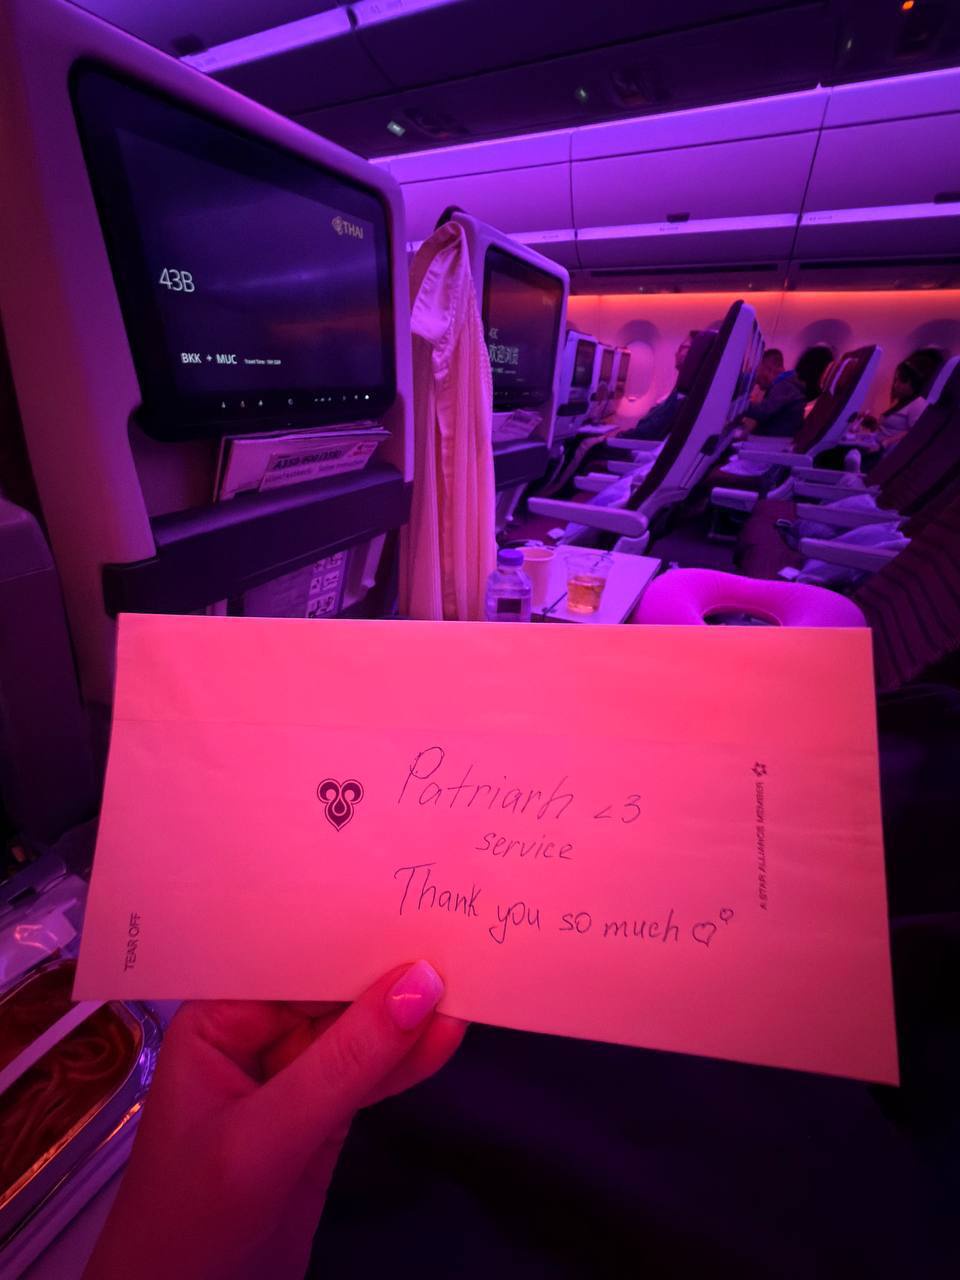 THAI
43B
BKK → MUC
A350-900 (359)
43C
欢迎浏览
Patriarh <3
service
Thank you so much ♡♡
A STAR ALLIANCE MEMBER
TEAR OFF